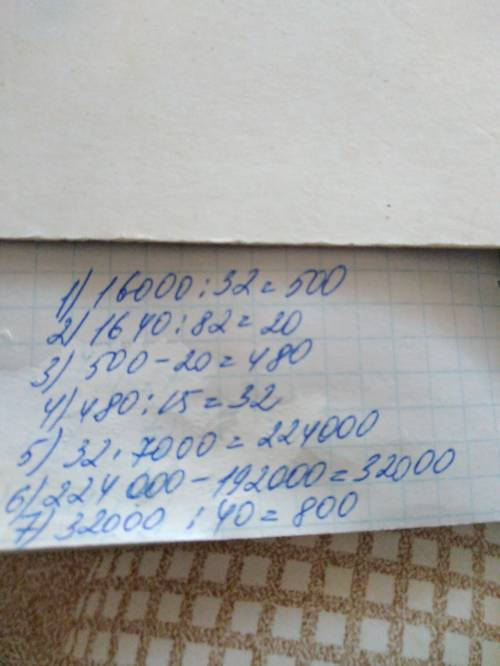 1) 16000:32=500
2) 1640:82=20
3) 500-20=480
4) 480:15=32
5) 32·7000=224000
6) 224000-192000=32000
7) 32000:40=800